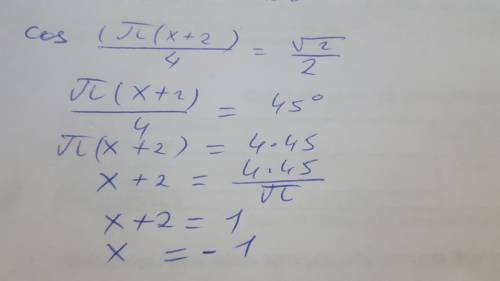 cos (π(x+2)/4 = √2/2
π(x+2)/4 = 45°
π(x+2) = 4·45
x+2 = 4·45/π
x+2 = 1
x = -1